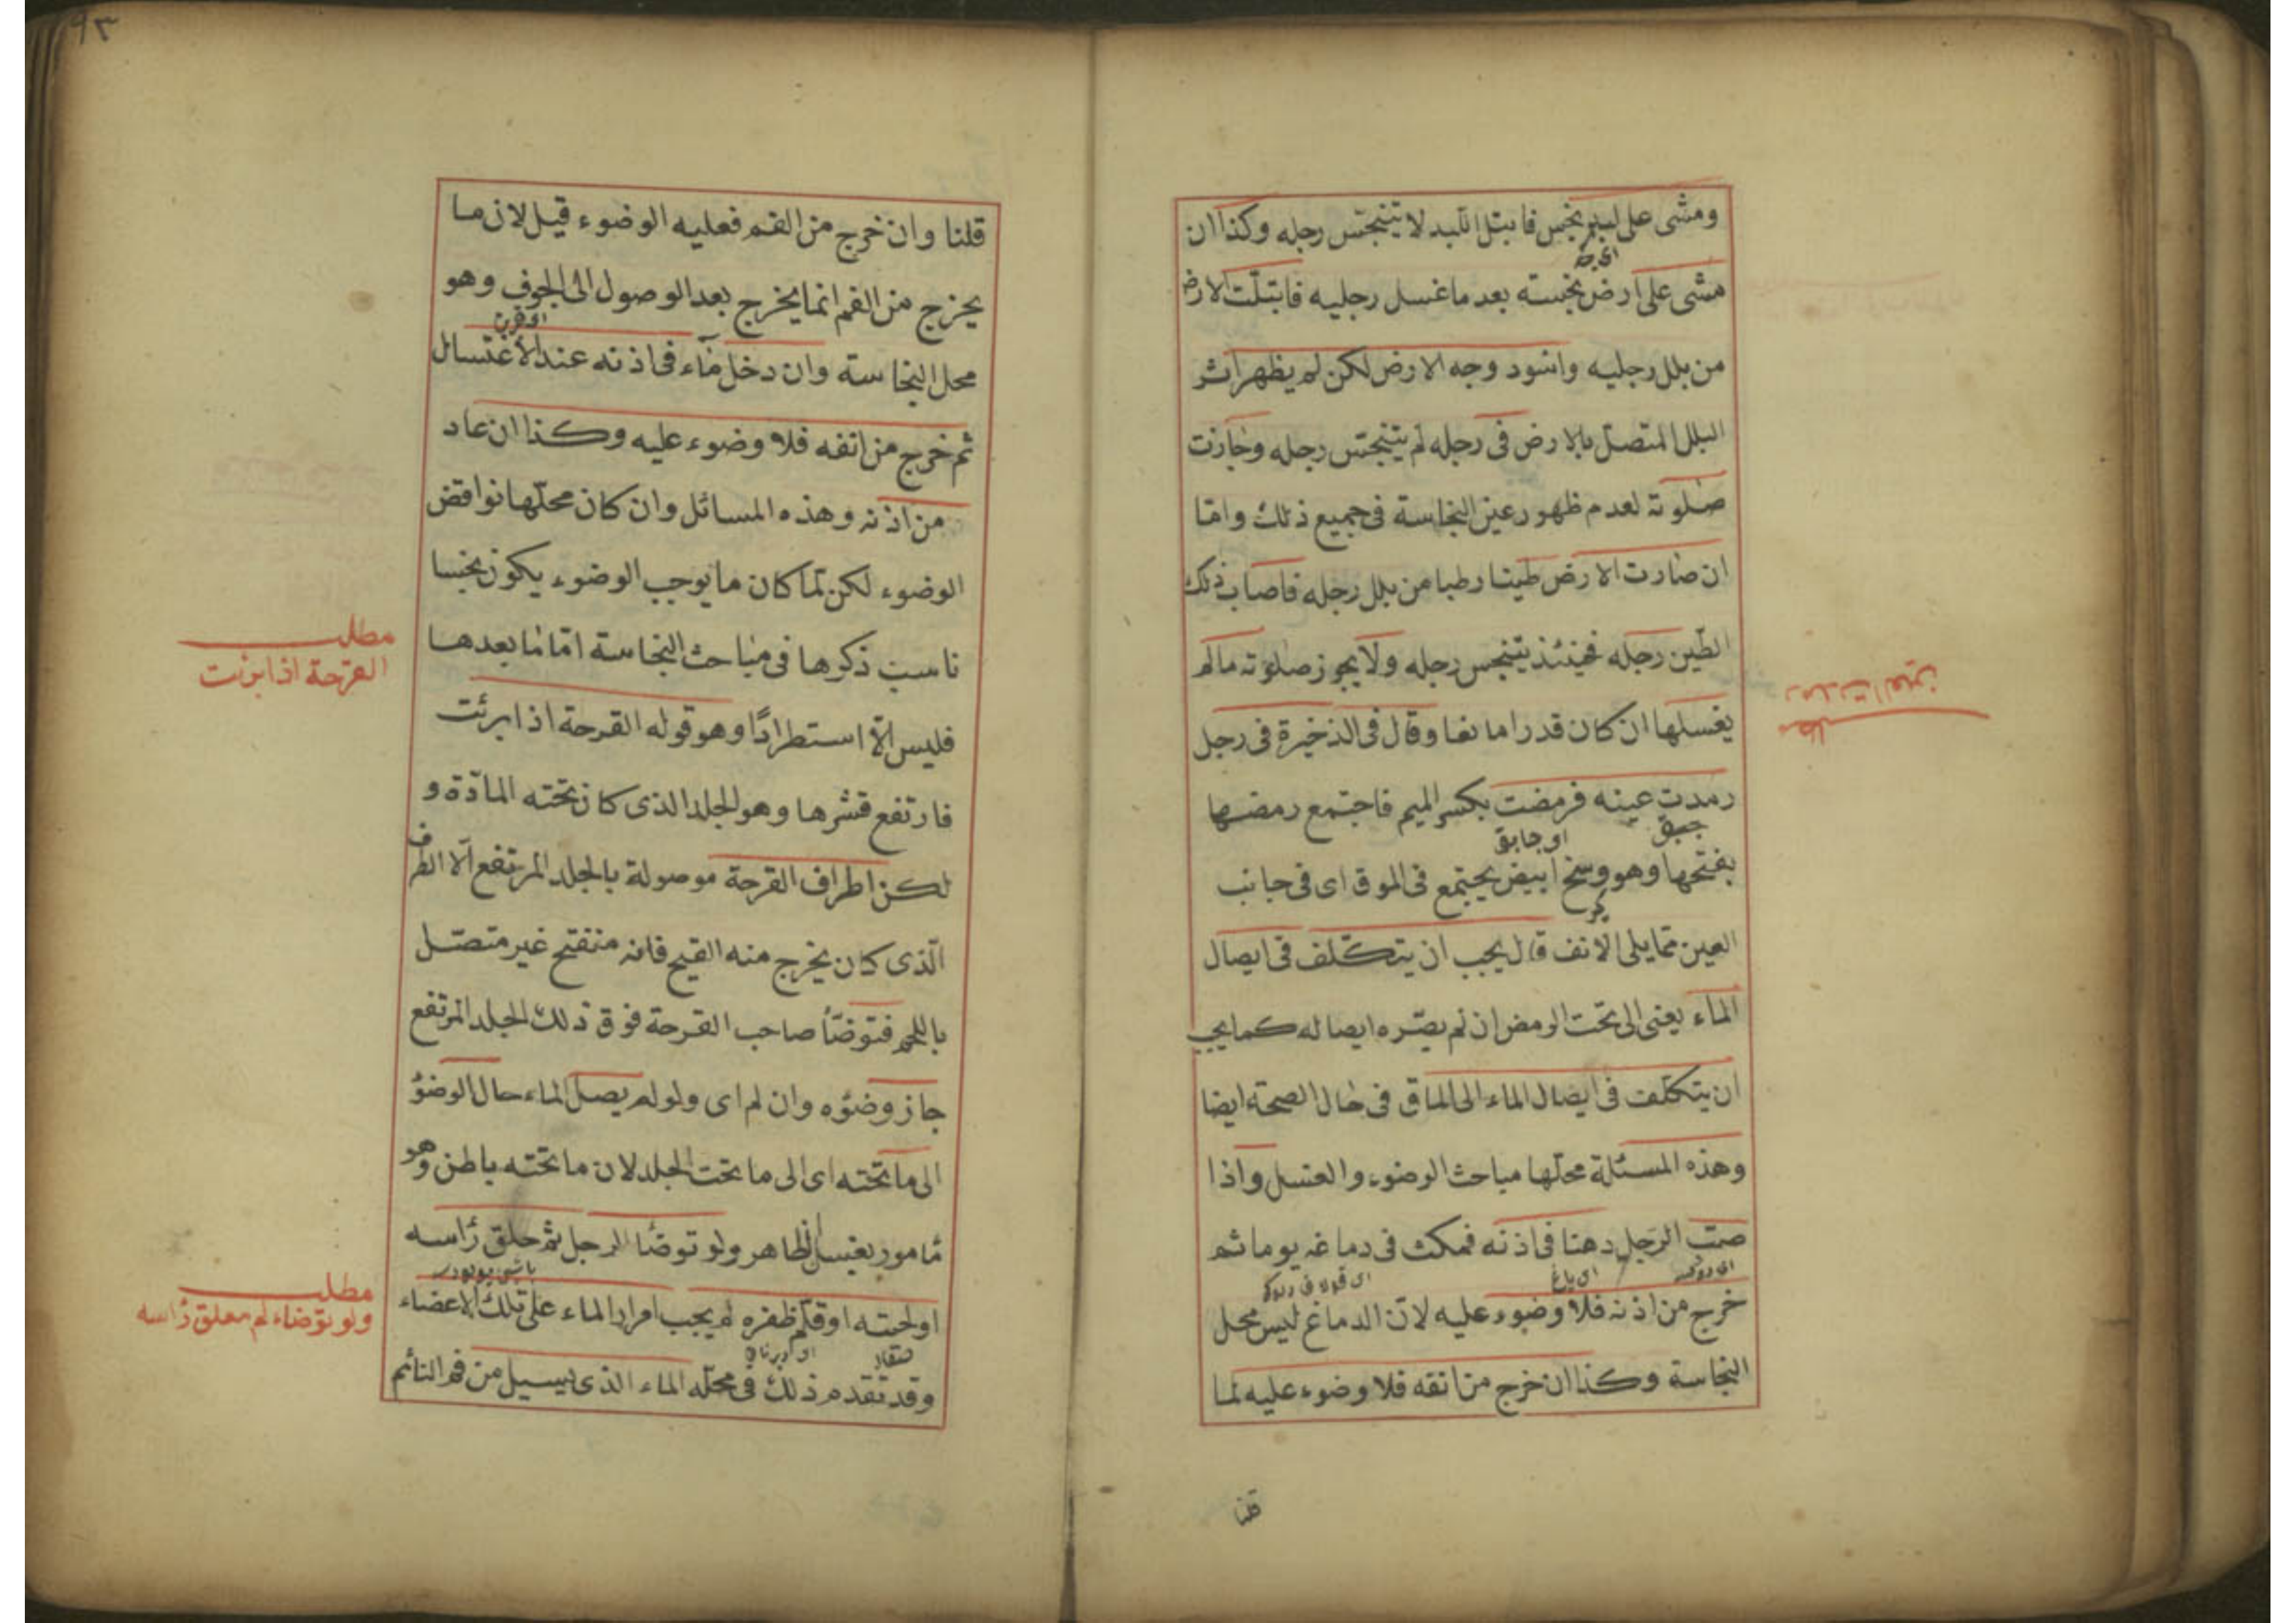 ومشى على لبد نجس فابتل اللبد لا يتنجس رجله وكذا ان
مشى على ارض نجسته بعد ما غسل رجليه فابتلت الارض
من بلل رجليه واسود وجه الارض لكن لم يظهر اثر
البلل المتصل بالارض فى رجله لم يتنجس رجله وجازت
صلوته لعدم ظهور عين النجاسة فى جميع ذلك واما
ان صارت الارض طينا رطبا من بلل رجله فاصاب ذلك
الطين رجله فحينئذ يتنجس رجله ولا يجوز صلوته مالم
يغسلها ان كان قدرا مانعا وقال فى الذخيرة فى رجل
رمدت عينه فرمضت بكسر الميم فاجتمع رمضها
جبق
او جابق
بفتحها وهو وسخ ابيض يجتمع فى الموق اى فى جانب
العين مما يلى الانف قال يجب ان يتكلف فى ايصال
الماء يعنى الى تحت الرمض ان لم يضره ايصاله كما يجب
ان يتكلف فى ايصال الماء الى الماق فى حال الصحة ايضا
وهذه المسئلة محلها مباحث الوضوء والغسل واذا
صب الرجل دهنا فى اذنه فمكث فى دماغه يوما ثم
اى ياغ
خرج من اذنه فلا وضوء عليه لان الدماغ ليس محل
النجاسة وكذا ان خرج من انفه فلا وضوء عليه لما
قلنا
رمدت العين
مطلب
٩٣
قلنا وان خرج من الفم فعليه الوضوء قيل لان ما
يخرج من الفم انما يخرج بعد الوصول الى الجوف وهو
محل النجاسة وان دخل ماء فى اذنه عند الاغتسال
ثم خرج من انفه فلا وضوء عليه وكذا ان عاد
من اذنه وهذه المسائل وان كان محلها نواقض
الوضوء لكن لما كان ما يوجب الوضوء يكون نجسا
ناسب ذكرها فى مباحث النجاسة اما ما بعدها
فليس الا استطرادًا وهو قوله القرحة اذا ابرئت
فارتفع قشرها وهو الجلد الذى كان تحته المادة و
لكن اطراف القرحة موصولة بالجلد المرتفع الا الطرف
الذى كان يخرج منه القيح فانه منفتح غير متصل
باللحم فتوضأ صاحب القرحة فوق ذلك الجلد المرتفع
جاز وضؤه وان لم اى ولو لم يصل الماء حال الوضؤ
الى ما تحته اى الى ما تحت الجلد لان ما تحته باطن وهو
مأمور بغسل الظاهر ولو توضأ الرجل ثم حلق رأسه
او لحيته او قلم ظفره لم يجب امرار الماء على تلك الاعضاء
وقد تقدم ذلك فى محله الماء الذى يسيل من فم النائم
مطلب
القرحة اذا ابرئت
مطلب
ولو توضاء ثم حلق رأسه